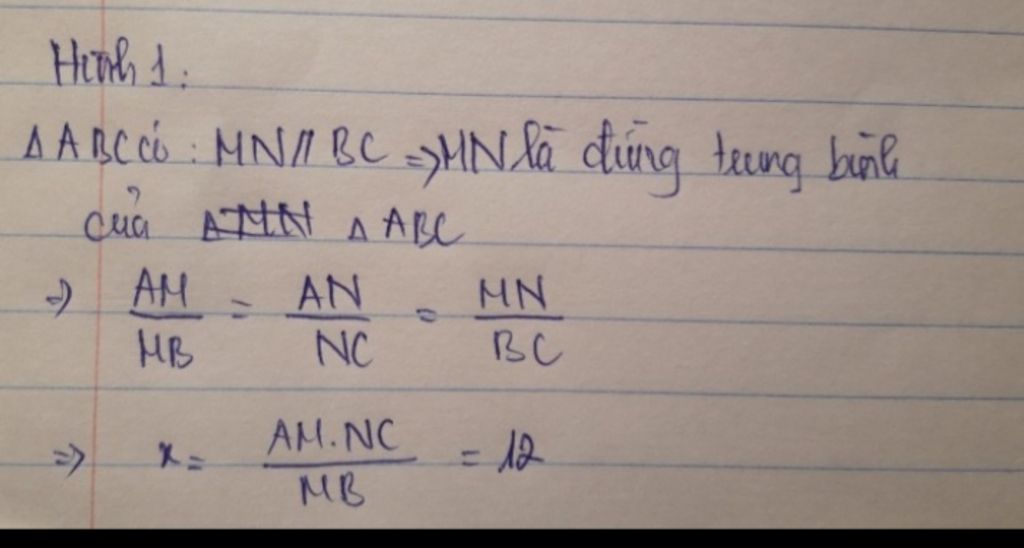 Hình 1:
Δ ABC có : MN // BC => MN là đường trung bình
của ΔMN Δ ABC
=> AM/MB = AN/NC = MN/BC
=> x = AM.NC/MB = 12